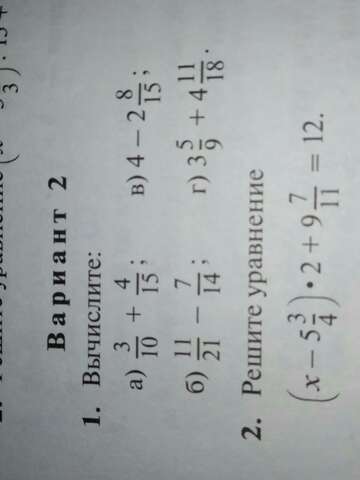 Решите уравнение
Вариант 2
1. Вычислите:
а) 3/10 + 4/15; в) 4 − 2 8/15;
б) 11/21 − 7/14; г) 3 5/9 + 4 11/18.
2. Решите уравнение
(x − 5 3/4) • 2 + 9 7/11 = 12.